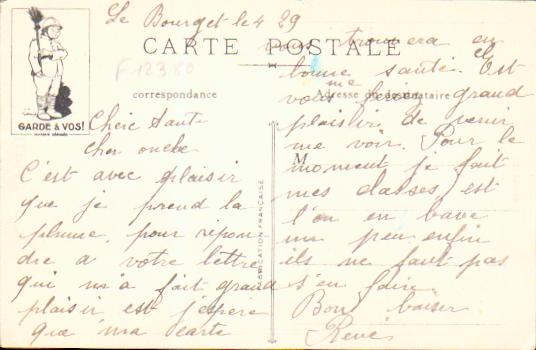 Le Bourget le 4 29
CARTE POSTALE
F12380
correspondance
Adresse du destinataire
GARDE à VOS!
M
FABRICATION FRANÇAISE
Cheie tante
cher oncle
C'est avec plaisir
que je prend la
plume, pour répon
dre a votre lettre
qui m'a fait grand
plaisir est j'espère
que ma carte
vous trouvera en
bonne santé. Est
vous me ferez grand
plaisir de venir
me voir. Pour le
moment je fait
mes classes est
l'on en bave
un peu enfin
ils ne faut pas
s'en faire
Bon baiser
René